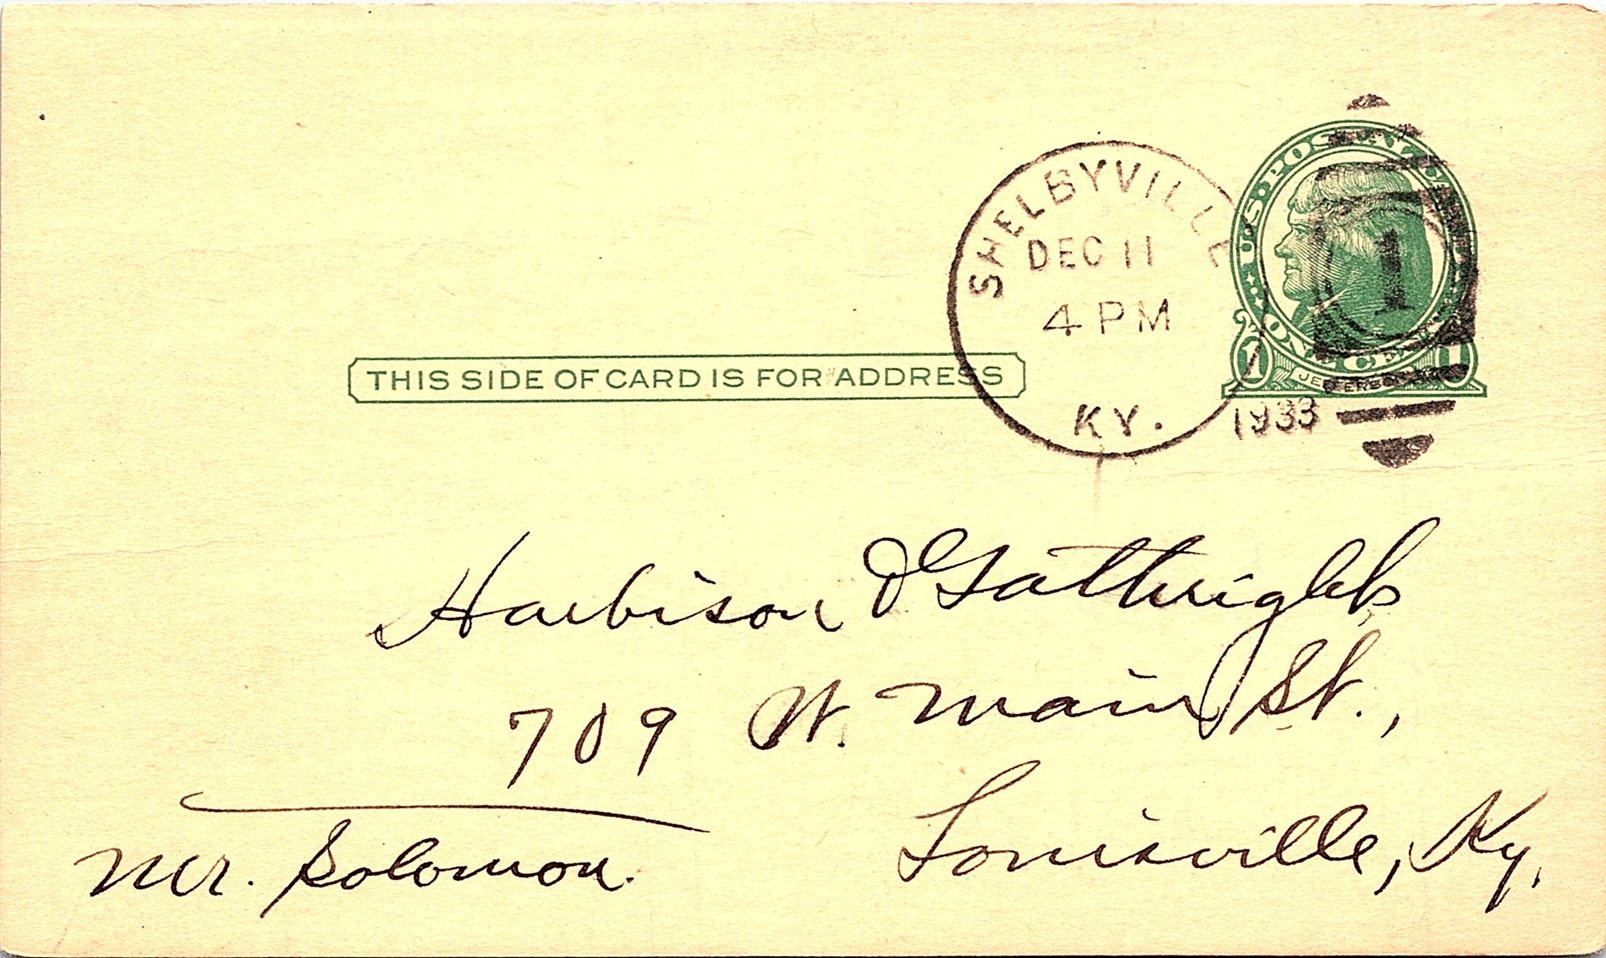 U.S. POSTAGE
SHELBYVILLE
DEC 11
4 PM
KY.
1933
1
ONE CENT
1 1
JEFFERSON
THIS SIDE OF CARD IS FOR ADDRESS
Harbison & Gathright
709 W. Main St.,
Louisville, Ky.
Mr. Solomon.